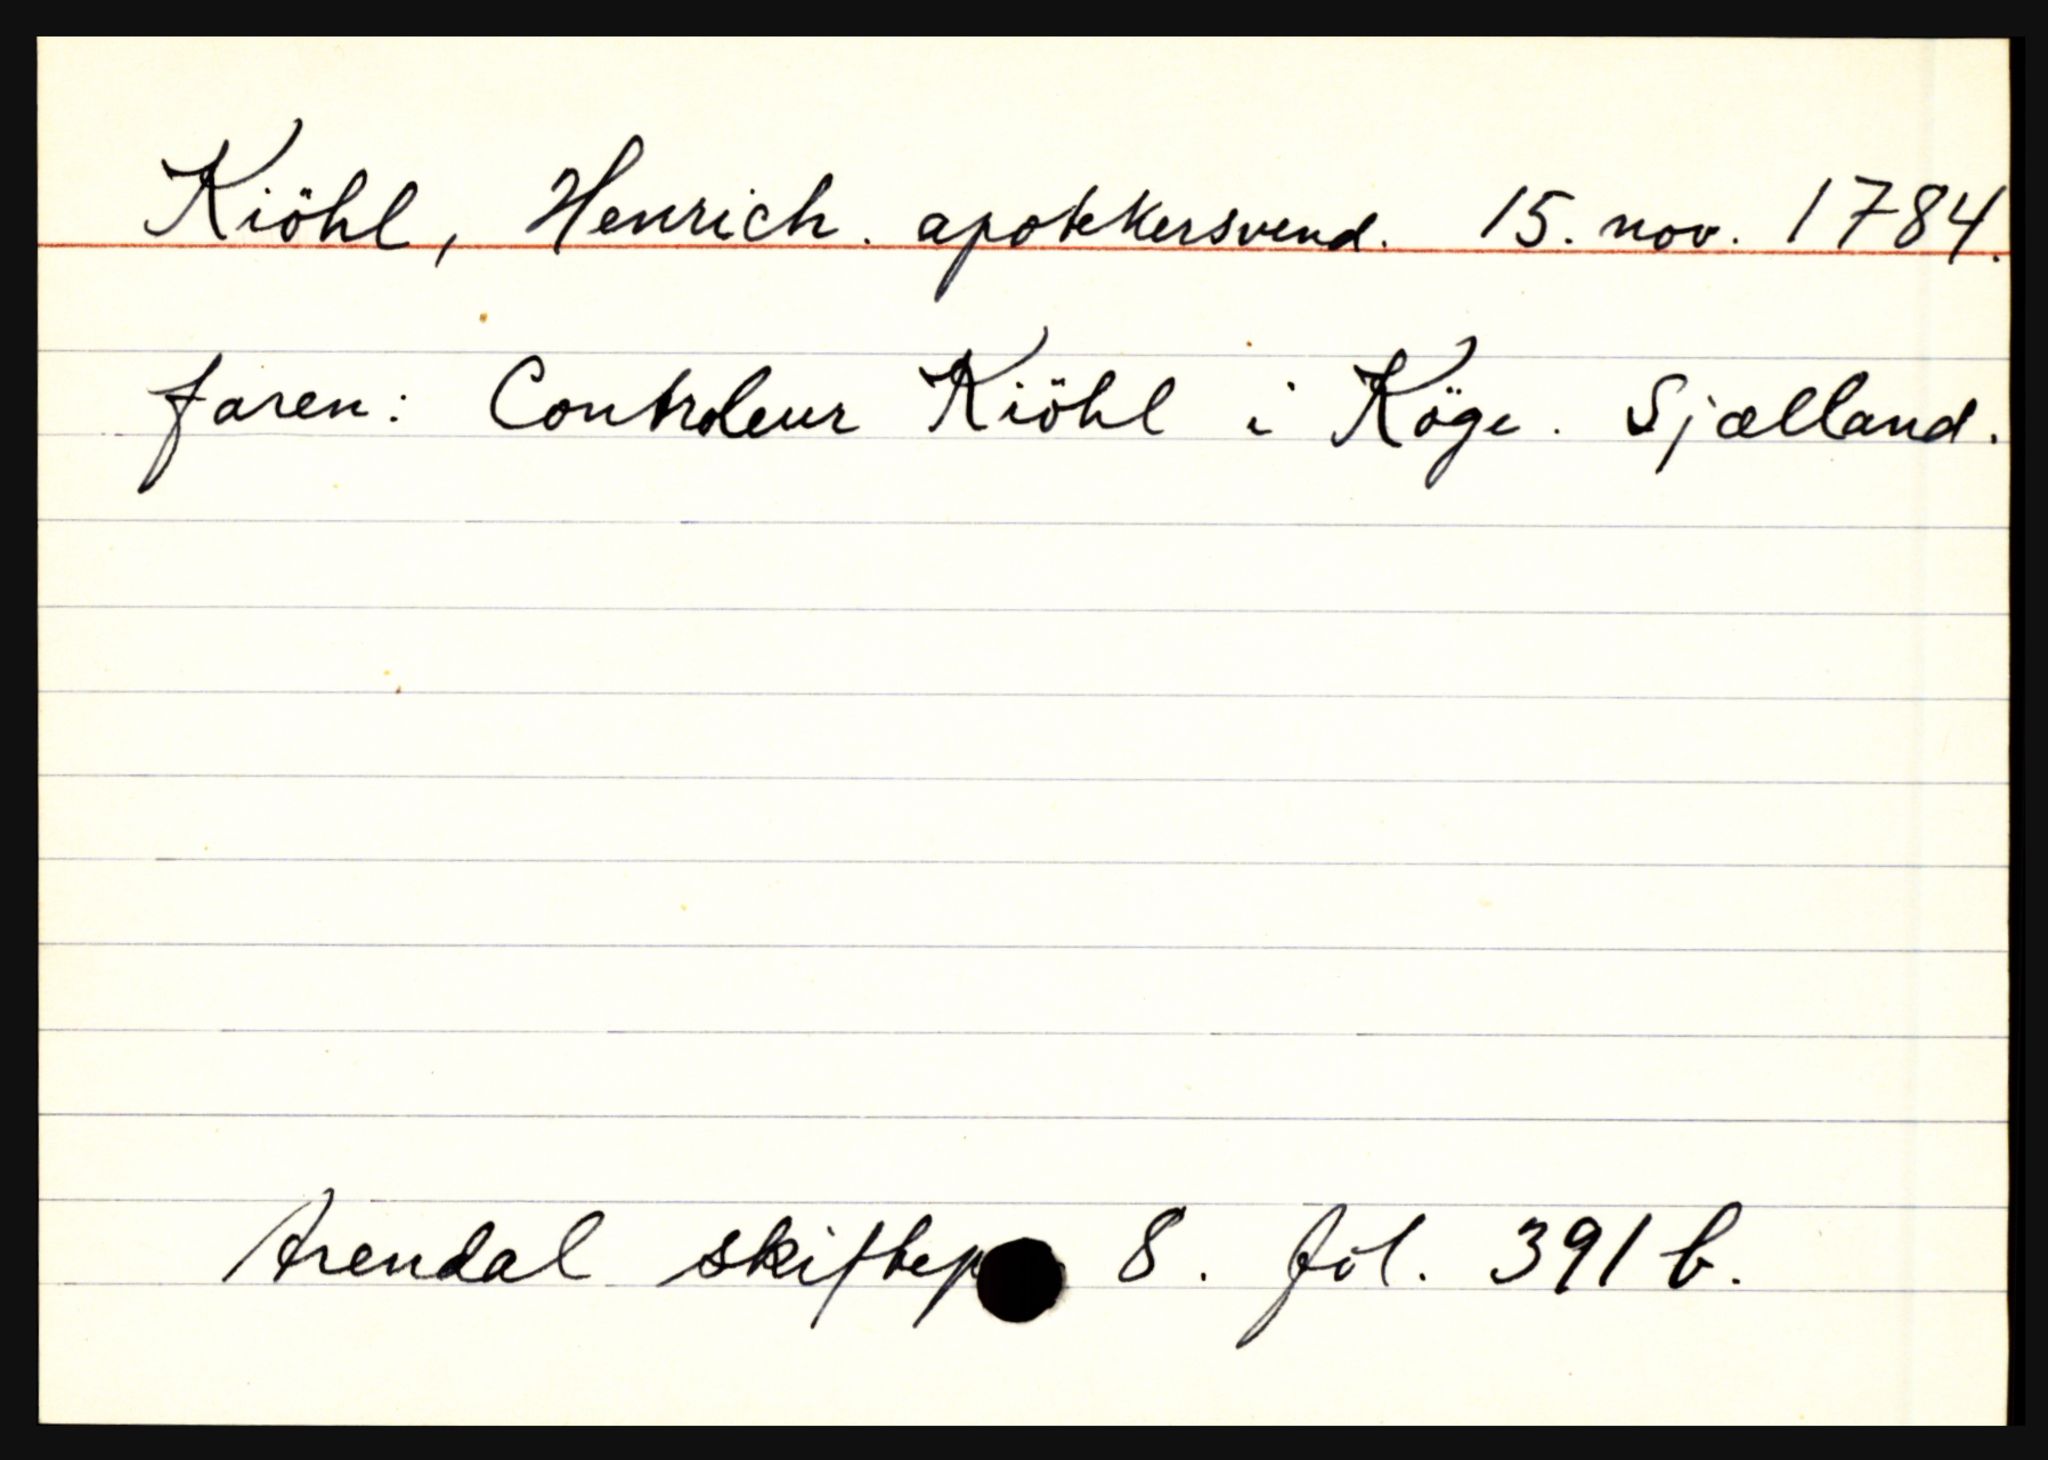 Kiöhl, Henrich. apotekersvend. 15. nov. 1784.
faren: Controleur Kiöhl i Köge. Sjælland.
Arendal skiftep 8. fol. 391 b.